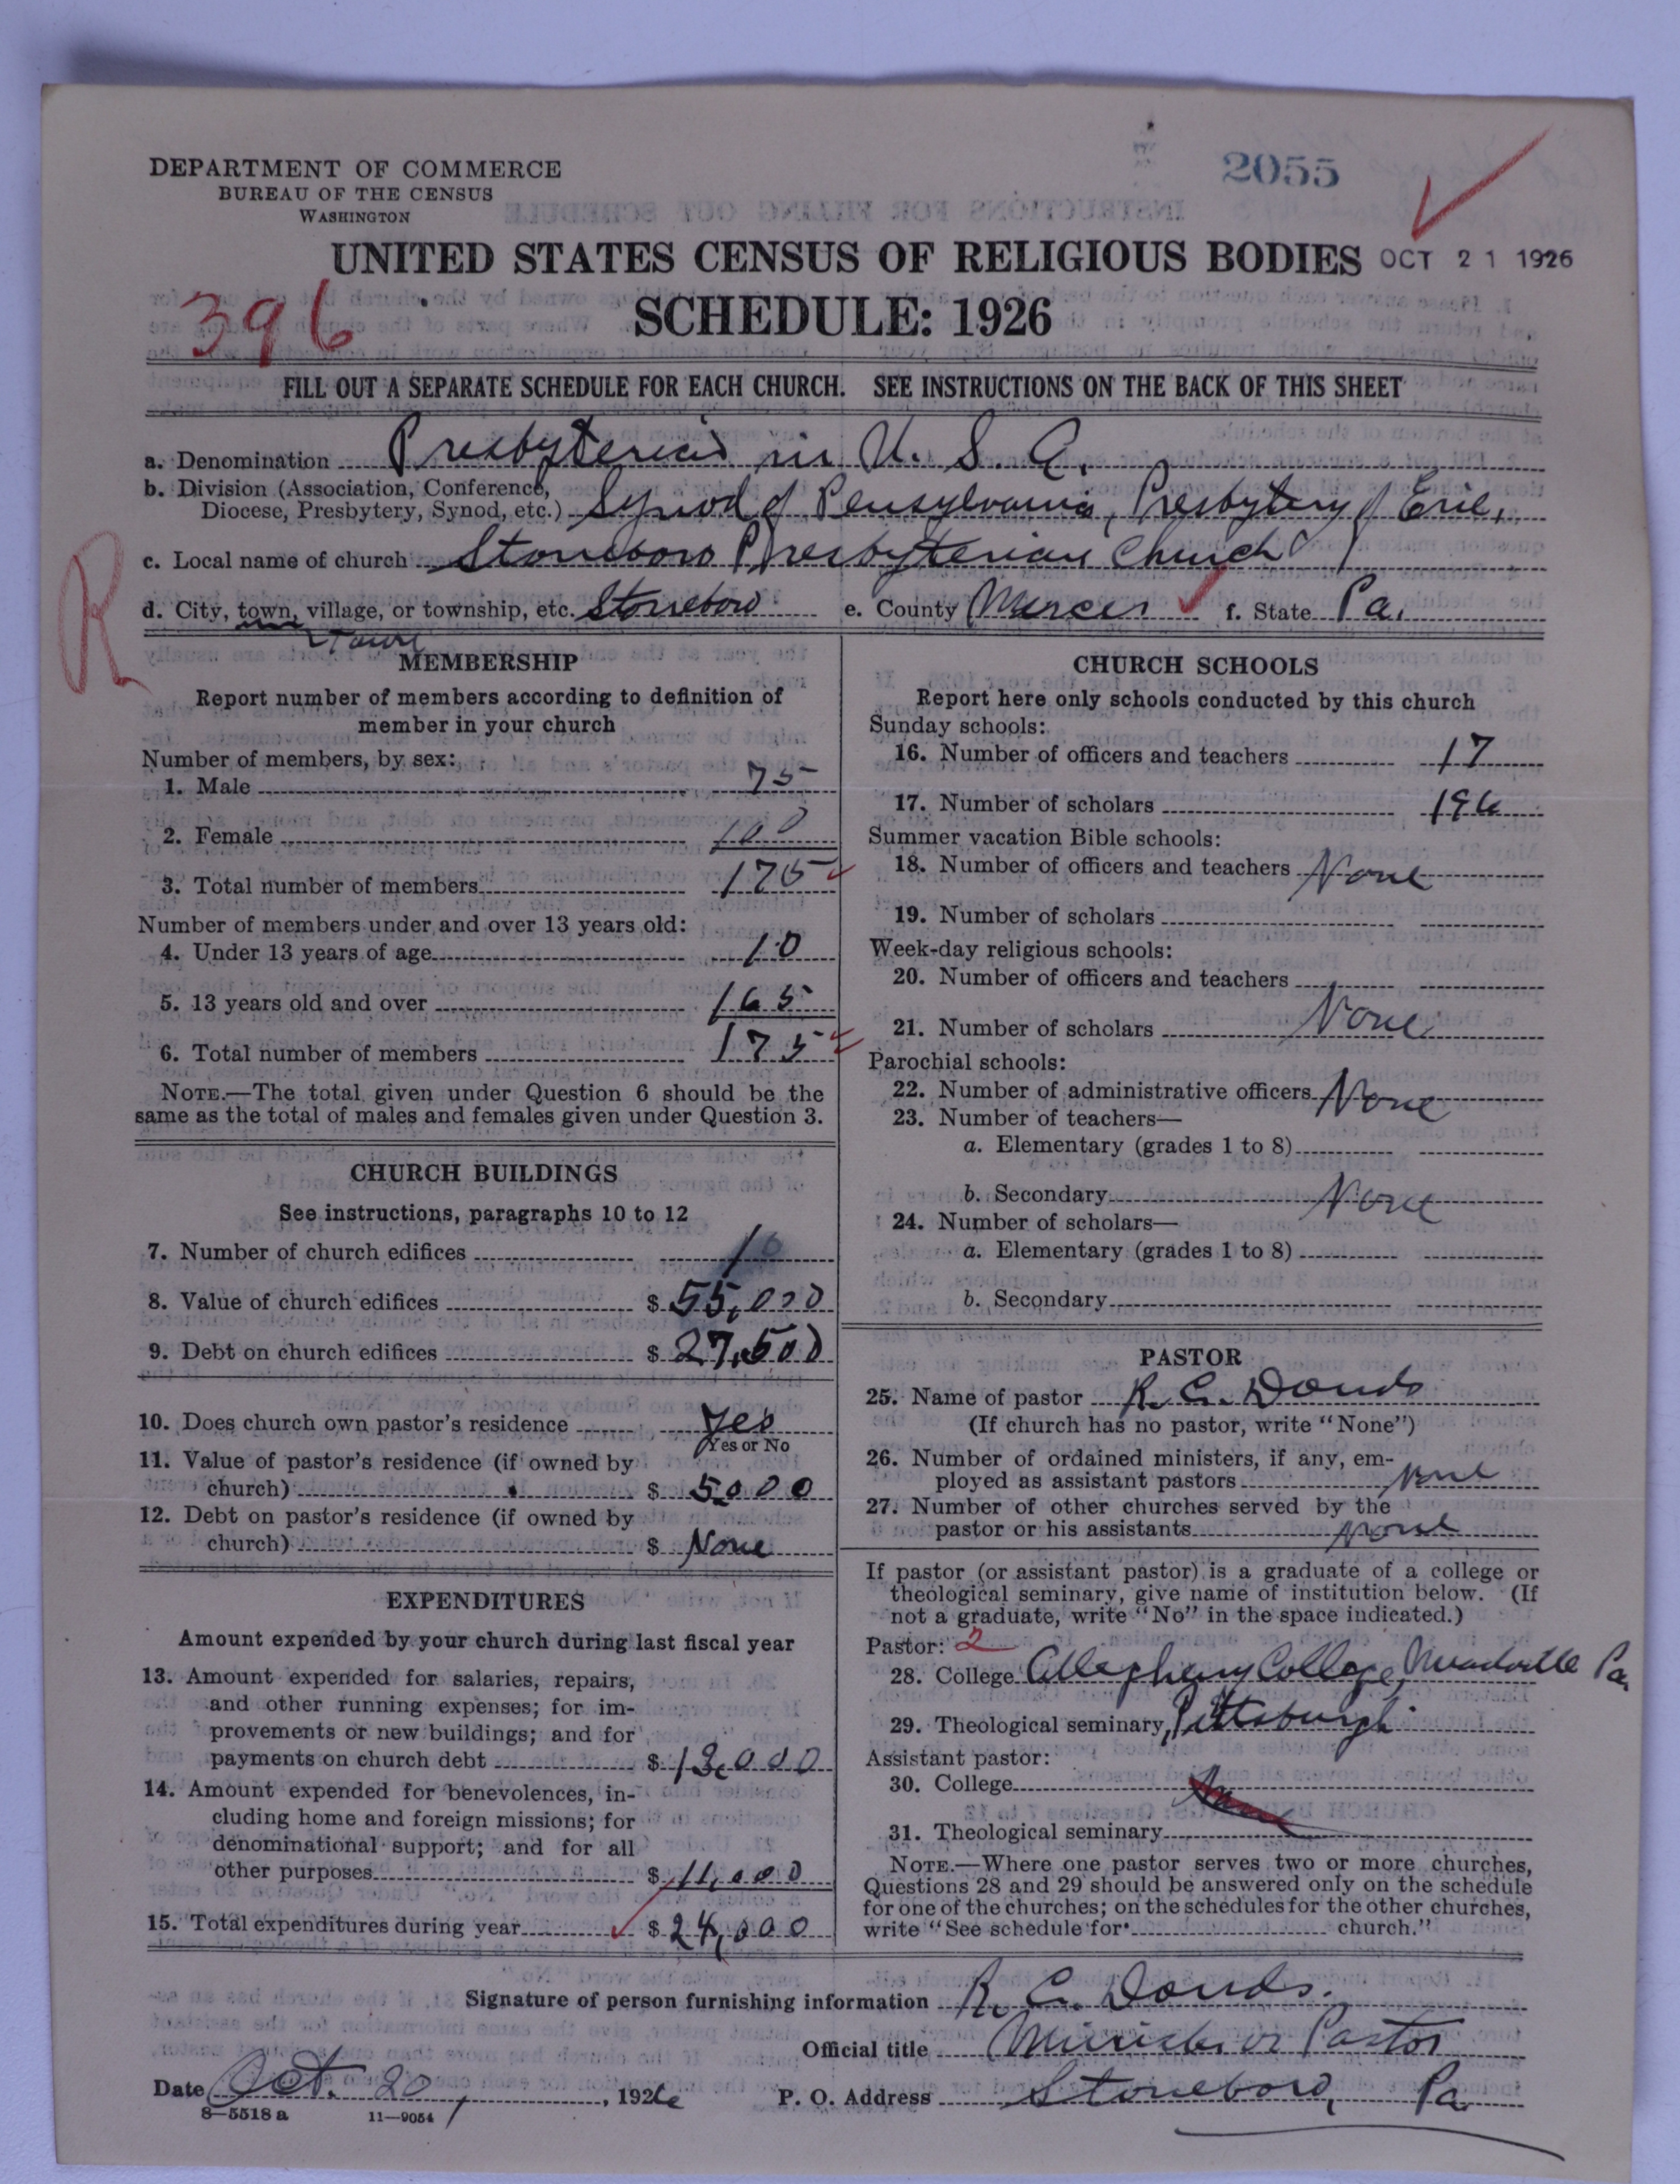 DEPARTMENT OF COMMERCE
BUREAU OF THE CENSUS
WASHINGTON
2055
UNITED STATES CENSUS OF RELIGIOUS BODIES OCT 21 1926
396
SCHEDULE: 1926
FILL OUT A SEPARATE SCHEDULE FOR EACH CHURCH. SEE INSTRUCTIONS ON THE BACK OF THIS SHEET
a. Denomination Presbyterian in U. S. A.
b. Division (Association, Conference,
Diocese, Presbytery, Synod, etc.) Synod of Pensylvania, Presbytery of Erie,
c. Local name of church Stoneboro Presbyterian Church
R
d. City, town, village, or township, etc. Stoneboro e. County Mercer f. State Pa.
Town
MEMBERSHIP
Report number of members according to definition of
member in your church
Number of members, by sex:
1. Male 75
2. Female 100
3. Total number of members 175
Number of members under and over 13 years old:
4. Under 13 years of age 10
5. 13 years old and over 165
6. Total number of members 175
NOTE.—The total given under Question 6 should be the
same as the total of males and females given under Question 3.
CHURCH BUILDINGS
See instructions, paragraphs 10 to 12
7. Number of church edifices 1
8. Value of church edifices $ 55,000
9. Debt on church edifices $ 27,500
10. Does church own pastor's residence Yes
Yes or No
11. Value of pastor's residence (if owned by
church) $ 5000
12. Debt on pastor's residence (if owned by
church) $ None
EXPENDITURES
Amount expended by your church during last fiscal year
13. Amount expended for salaries, repairs,
and other running expenses; for im-
provements or new buildings; and for
payments on church debt $ 13,000
14. Amount expended for benevolences, in-
cluding home and foreign missions; for
denominational support; and for all
other purposes $ 11,000
15. Total expenditures during year $ 24,000
CHURCH SCHOOLS
Report here only schools conducted by this church
Sunday schools:
16. Number of officers and teachers 17
17. Number of scholars 196
Summer vacation Bible schools:
18. Number of officers and teachers None
19. Number of scholars
Week-day religious schools:
20. Number of officers and teachers
21. Number of scholars None
Parochial schools:
22. Number of administrative officers None
23. Number of teachers—
a. Elementary (grades 1 to 8)
b. Secondary None
24. Number of scholars—
a. Elementary (grades 1 to 8)
b. Secondary
PASTOR
25. Name of pastor R. C. Douds
(If church has no pastor, write "None")
26. Number of ordained ministers, if any, em-
ployed as assistant pastors None
27. Number of other churches served by the
pastor or his assistants None
If pastor (or assistant pastor) is a graduate of a college or
theological seminary, give name of institution below. (If
not a graduate, write "No" in the space indicated.)
Pastor: 2
28. College Allegheny College, Meadville Pa.
29. Theological seminary, Pittsburgh
Assistant pastor:
30. College
31. Theological seminary
NOTE.—Where one pastor serves two or more churches,
Questions 28 and 29 should be answered only on the schedule
for one of the churches; on the schedules for the other churches,
write "See schedule for church."
Signature of person furnishing information R. C. Douds.
Official title Minister or Pastor
Date Oct. 20, 1926 P. O. Address Stoneboro, Pa.
8-5518 a 11-9054